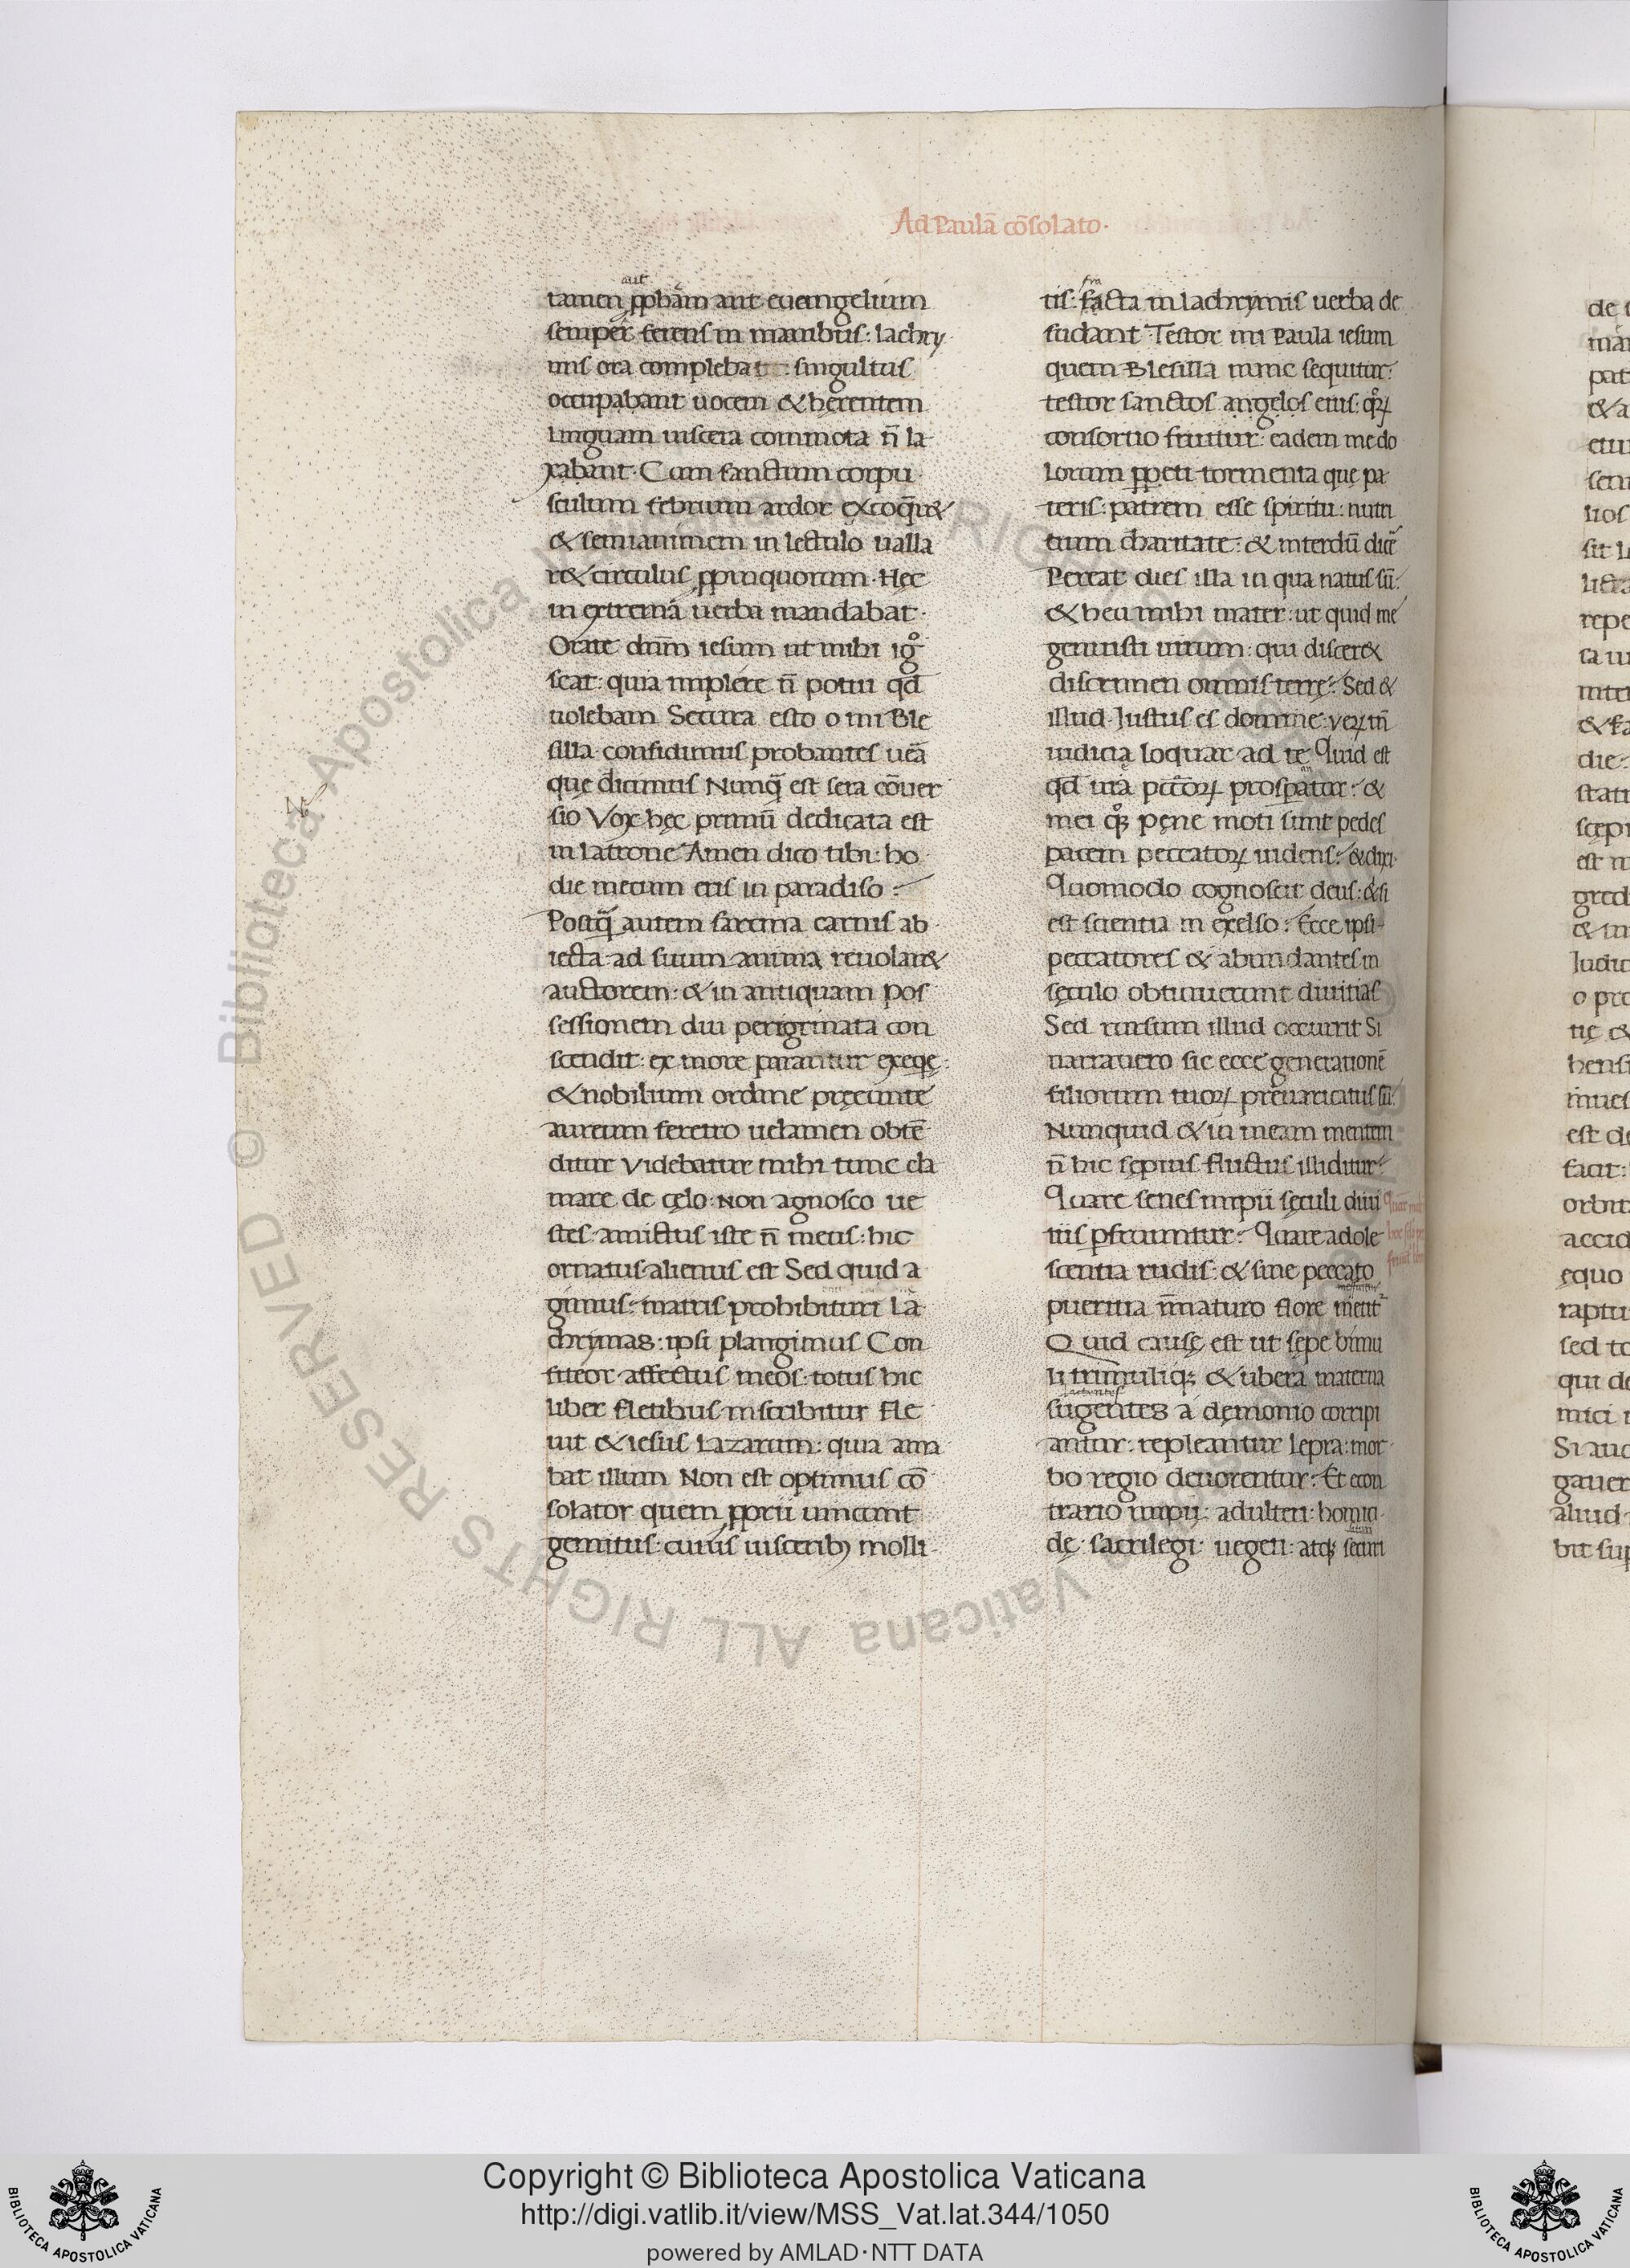 Ad Paulā cōsolato·
aut
tamen ꝓpham aut euangelium
semper ferens in manibus: lachry
mis ora compleba : singultus
occupabant uocem & hęrentem
linguam uiscera commota n̄ la
xabant· Cum sanctum corpu
sculum febrium ardor excoq̄ret
& semianimem in lectulo ualla
ret circulus ꝓpinquorum· Hęc
in extremā uerba mandabat·
Orate dn̄m iesum ut mihi ig̊
scat: quia implere n̄ potui qd̄
uolebam Secura esto o mi Ble
silla· confidimus probantes uēa
que dicimus Nunq̄ est sera cōuer
sio Vox hęc primū dedicata est
in latrone Amen dico tibi: ho
die mecum eris in paradiso :
Postq̄ autem sarcina carnis ab
iecta· ad suum anima reuolauet
auctorem: & in antiquam pos
sessionem diu peregrinata con
scendit: ex more parantur exeqę:
& nobilium ordine pręeunte
aureum feretro uelamen obtē
ditur Videbatur mihi tunc cla
mare de cęlo: Non agnosco ue
stes· amictus iste n̄ meus: hic
ornatus alienus est Sed quid a
gimus· matris prohibituri la
chrymas: ipsi plangimus Con
fiteor affectus meos· totus hic
liber fletibus inscribitur Fle
uit & iesus Lazarum: quia ama
bat illum Non est optimus cō
solator quem ꝓprii uincunt
gemitus: cuius uiscerib; molli
tis: facta in lachrymis uerba de
sudant· Testor mi Paula iesum
quem Blesilla nunc sequitur:
testor sanctos angelos eius: q̊ꝝ
consortio fruitur: eadem me do
lorum ꝑpeti tormenta que pa
teris: patrem esse spiritu: nutri
tium charitate: & interdū dicē
Pereat dies illa in qua natus sū:
& heu mihi mater: ut quid me
genuisti uirum: qui disceret
discrimen omnis terrę: Sed &
illud· Iustus es domine: veꝝ tn̄
iudicia loquar ad te Quid est
qd̄ uia pct̄oꝝ prosperatur: &
mei q̊ꝫ pęne moti sunt pedes
pacem peccatoꝝ uidens: & dixi·
Quomodo cognoscit deus: & si
est scientia in excelso: Ecce ipsi
peccatores & abundantes in
sęculo obtinuerunt diuitias
Sed rursum illud occurrit Si
narrauero sic ecce generationē
filiorum tuoꝝ pręuaricatus sū:
Nunquid & in meam mentem
n̄ hic sępius fluctus illiditur:
Quare senes impii sęculi diui
tiis ꝑfruuntur: Quare adole
scentia rudis: & sine peccato
pueritia īmaturo flore metit᷑
Quid causę est ut sępe bimu
li trimuliqꝫ & ubera materna
lactentes
sugentes a dęmonio corripi
antur: repleantur lepra: mor
bo regio deuorentur: Et econ
trario impii: adulteri: homici
dę· sacrilegi· uegeti: atqꝫ securi
© Biblioteca Apostolica Vaticana ALL RIGHTS RESERVED
Copyright © Biblioteca Apostolica Vaticana
http://digi.vatlib.it/view/MSS_Vat.lat.344/1050
powered by AMLAD·NTT DATA
BIBLIOTECA APOSTOLICA VATICANA
BIBLIOTECA APOSTOLICA VATICANA